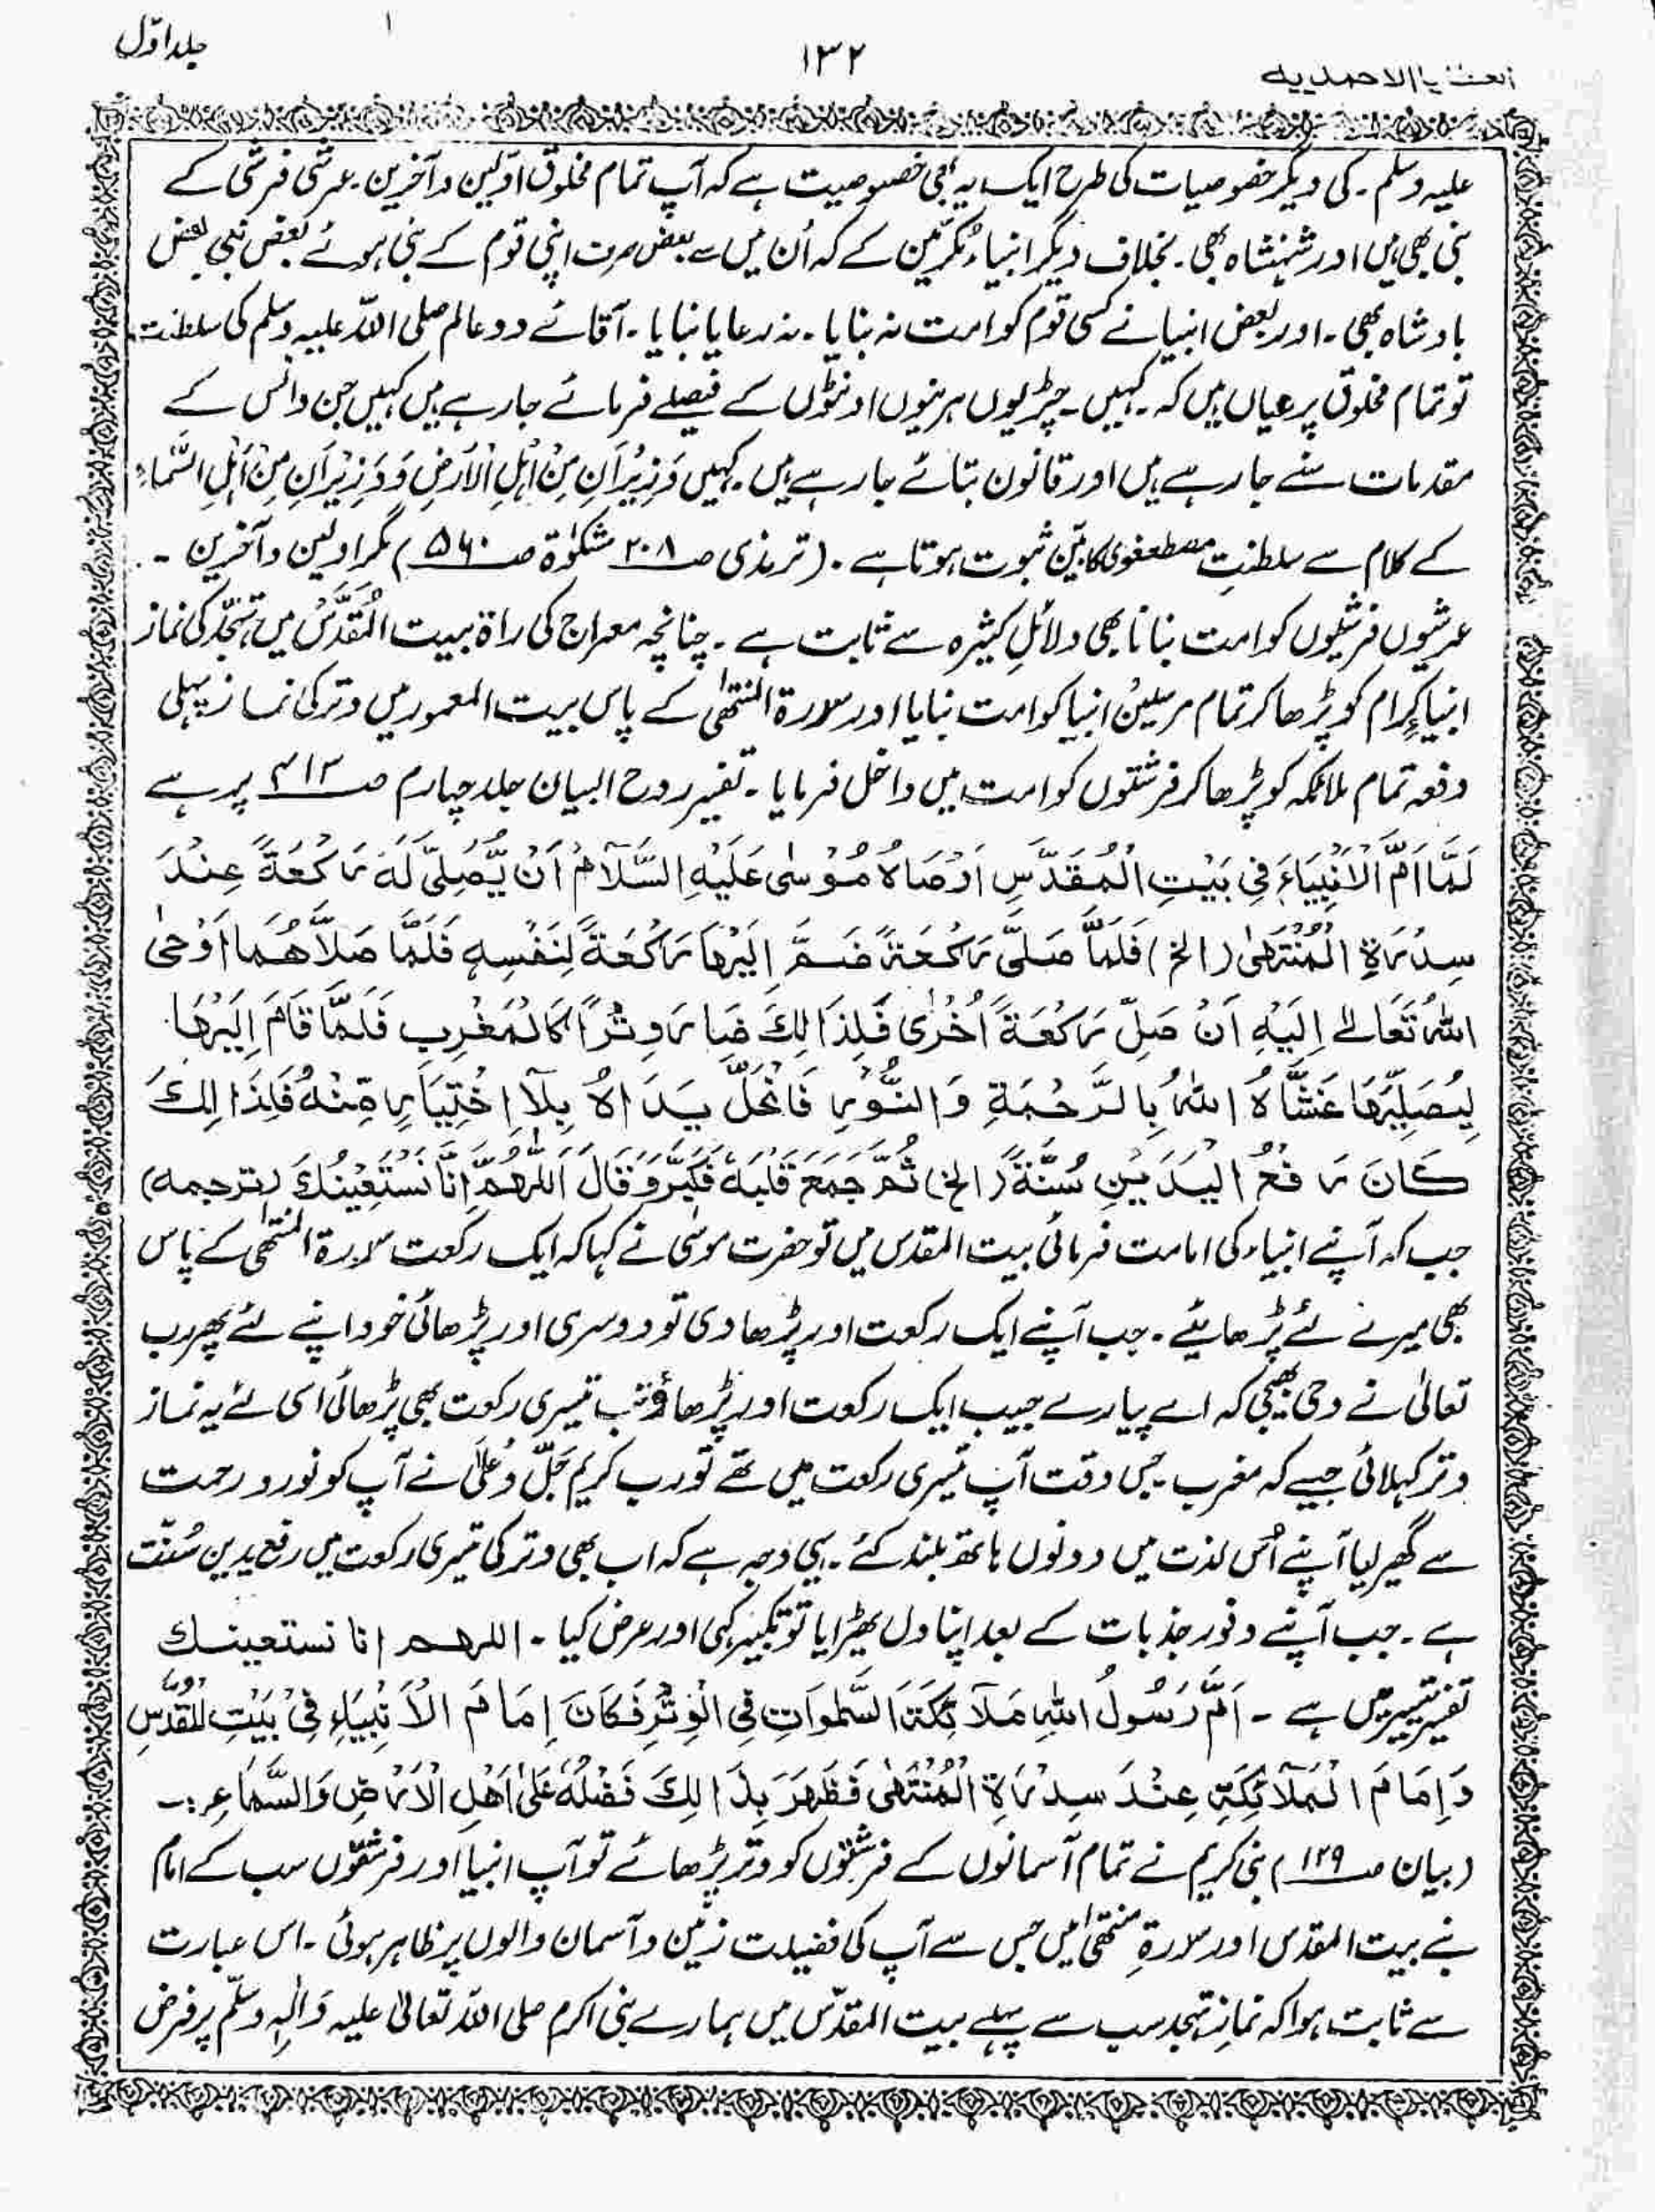 جلد اوّل
۱۳۲
العطایا الاحمدیہ
علیہ وسلم۔ کی دیگر خصوصیات کی طرح ایک یہ بھی خصوصیت ہے کہ آپ تمام مخلوق اوّلین و آخرین۔ عرشی فرشی کے
نبی بھی ہیں اور شہنشاہ بھی۔ بخلاف دیگر انبیاءِ مُکرَّمین کے کہ اُن میں سے بعض صرف اپنی قوم کے نبی ہوئے بعض نبی بعض
بادشاہ بھی۔ اور بعض انبیا نے کسی قوم کو امت نہ بنایا۔ نہ رعایا بنایا۔ آقائے دو عالم صلی اللہ علیہ وسلم کی سلطنت
تو تمام مخلوق پر عیاں ہیں کہ۔ کہیں۔ چڑیوں ہرنیوں اونٹوں کے فیصلے فرمائے جا رہے ہیں کہیں جن و انس کے
مقدمات سنے جا رہے ہیں اور قانون بتائے جا رہے ہیں۔ کہیں وَزِیْرَانِ مِنْ اَہْلِ الْاَرْضِ وَ وَزِیْرَانِ مِنْ اَہْلِ السَّمَاءِ
کے کلام سے سلطنتِ مصطفوی کا بیّن ثبوت ہوتا ہے۔ (ترمذی صـ ۲۰۸ مشکوٰۃ صـ ۵۶۰) مگر اولین و آخرین ۔
عرشیوں فرشیوں کو امت بنانا بھی دلائلِ کثیرہ سے ثابت ہے۔ چنانچہ معراج کی راۃ بیت المُقَدَّس میں تہجّد کی نماز
انبیاءِ کرام کو پڑھا کر تمام مرسلین انبیا کو امت بنایا اور سدرۃ المنتھٰی کے پاس بیت المعمور میں وتر کی نماز پہلی
دفعہ تمام ملائکہ کو پڑھا کر فرشتوں کو امت میں داخل فرمایا۔ تفسیر روح البیان جلد چہارم صـ ۳۱۳ پر ہے
لَمَّا اَمَّ الْاَنْبِیَاءَ فِی بَیْتِ الْمُقَدَّسِ اَوْصَاہُ مُوْسٰی عَلَیْہِ السَّلَامُ اَنْ یُّصَلِّیَ لَہٗ رَکْعَۃً عِنْدَ
سِدْرَۃِ الْمُنْتَھٰی (الخ) فَلَمَّا صَلّٰی رَکْعَۃً ضَمَّ اِلَیْھَا رَکْعَۃً لِنَفْسِہٖ فَلَمَّا صَلَّاھُمَا اَوْحٰی
اللہُ تَعَالٰے اِلَیْہِ اَنْ صَلِّ رَکْعَۃً اُخْرٰی فَلِذَالِکَ صَارَ وِتْرًا کَالْمَغْرِبِ فَلَمَّا قَامَ اِلَیْھَا
لِیُصَلِّیَھَا غَشَّاہُ اللہُ بِالرَّحْمَۃِ وَالنُّوْرِ فَانْحَلَّ یَدَاہُ بِلَا اِخْتِیَارٍ مِّنْہُ فَلِذَالِکَ
کَانَ رَفْعُ الْیَدَیْنِ سُنَّۃً (الخ) ثُمَّ جَمَعَ قَلْبَہٗ فَکَبَّرَ وَقَالَ اَللّٰھُمَّ اِنَّا نَسْتَعِیْنُکَ (ترجمہ)
جب کہ آپنے انبیاء کی امامت فرمائی بیت المقدس میں تو حضرت موسٰی نے کہا کہ ایک رکعت سدرۃ المنتھٰی کے پاس
بھی میرے لئے پڑھائیے۔ جب آپنے ایک رکعت اور پڑھا دی تو دوسری اور پڑھائی خود اپنے لئے پھر رب
تعالٰی نے وحی بھیجی کہ اے پیارے حبیب ایک رکعت اور پڑھاؤ تب تیسری رکعت بھی پڑھائی اسی لئے یہ نماز
وتر کہلائی جیسے کہ مغرب۔ جس وقت آپ تیسری رکعت میں تھے تو رب کریم جَلَّ وَعُلٰی نے آپ کو نور و رحمت
سے گھیر لیا آپنے اُس لذت میں دونوں ہاتھ بلند کئے۔ یہی وجہ ہے کہ اب بھی وتر کی تیسری رکعت میں رفع یدین سُنّت
ہے۔ جب آپنے وفورِ جذبات کے بعد اپنا دل ٹھیرایا تو تکبیر کہی اور عرض کیا۔ اللھم انا نستعینک
تفسیر تیسیر میں ہے۔ اَمَّ رَسُولُ اللہِ مَلَآئِکَۃَ السَّمٰوَاتِ فِی الْوِتْرِ فَکَانَ اِمَامَ الْاَنْبِیَاءِ فِیْ بَیْتِ الْمُقَدَّسِ
وَاِمَامَ الْمَلَآئِکَۃِ عِنْدَ سِدْرَۃِ الْمُنْتَھٰی فَظَھَرَ بِذَالِکَ فَضْلُہٗ عَلٰی اَھْلِ الْاَرْضِ وَالسَّمَاءِ:۔
(بیان صـ ۱۲۹) نبی کریم نے تمام آسمانوں کے فرشتوں کو وتر پڑھائے تو آپ انبیا اور فرشتوں سب کے امام
بنے بیت المقدس اور سدرۃِ منتھٰی میں جس سے آپ کی فضیلت زمین و آسمان والوں پر ظاہر ہوئی۔ اس عبارت
سے ثابت ہوا کہ نمازِ تہجد سب سے پہلے بیت المقدّس میں ہمارے نبی اکرم صلی اللہ تعالٰی علیہ وَاٰلِہٖ وسلّم پر فرض